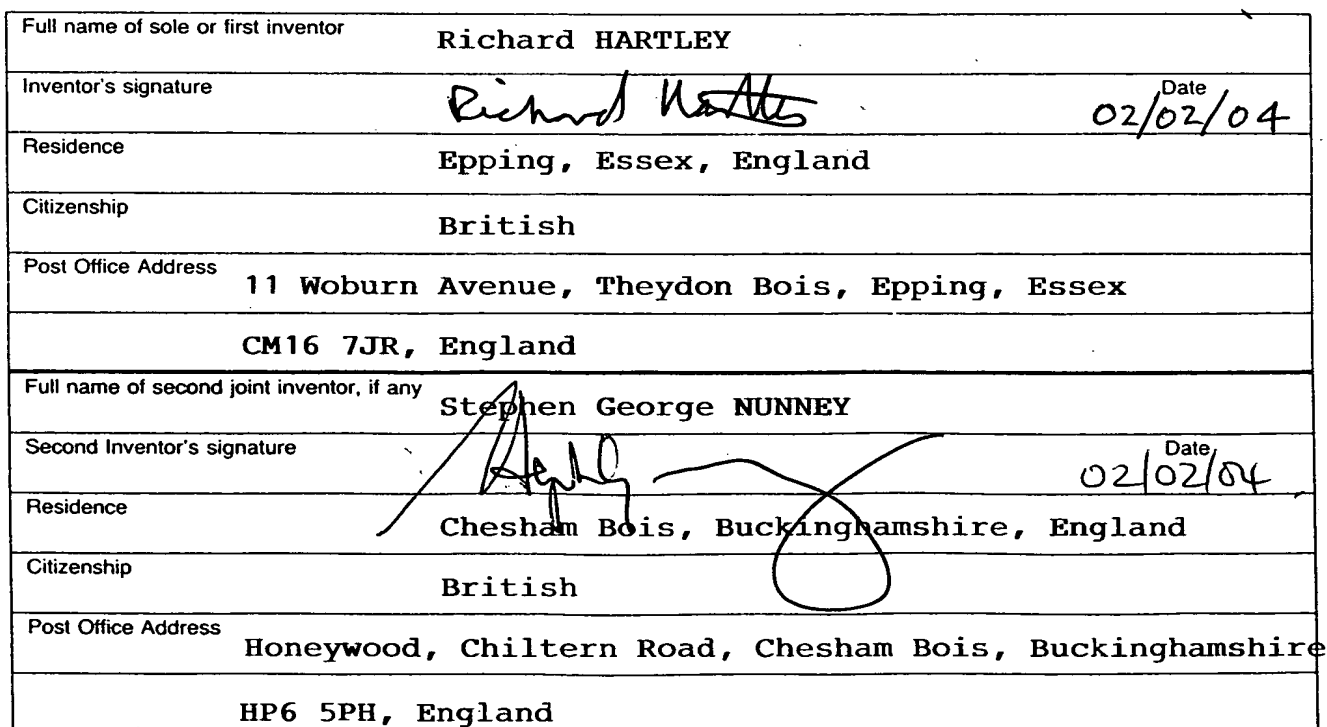 Full name of sole or first inventor Richard HARTLEY
Inventor's signature Richard Hartley Date 02/02/04
Residence Epping, Essex, England
Citizenship British
Post Office Address 11 Woburn Avenue, Theydon Bois, Epping, Essex
CM16 7JR, England
Full name of second joint inventor, if any Stephen George NUNNEY
Second Inventor's signature Date 02/02/04
Residence Chesham Bois, Buckinghamshire, England
Citizenship British
Post Office Address Honeywood, Chiltern Road, Chesham Bois, Buckinghamshire
HP6 5PH, England